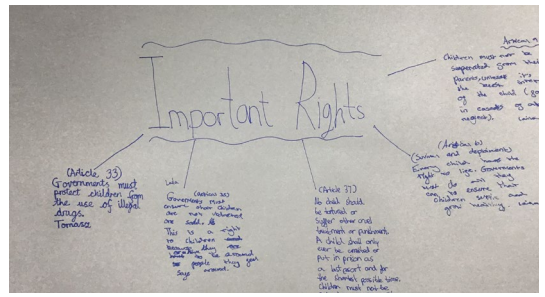 Important Rights
(Article 33)
Governments must
protect children from
the use of illegal
drugs.
Tomasz
Governments must
ensure that children
are not
are sold.
This is a right
to children
because they
to be around
people they
says around.
(Article 37)
No child should
be tortured or
suffer other cruel
treatment or punishment.
A child shall only
ever be arrested or
put in prison as
a last resort and for
the shortest possible time.
Children must not be
Children must not be
separated from their
parents, unless it's
the best
of the child
in
neglect).
(Article 6)
Every child has the
right to life. Governments
must do all they
can to ensure that
children survive and
grow healthy.